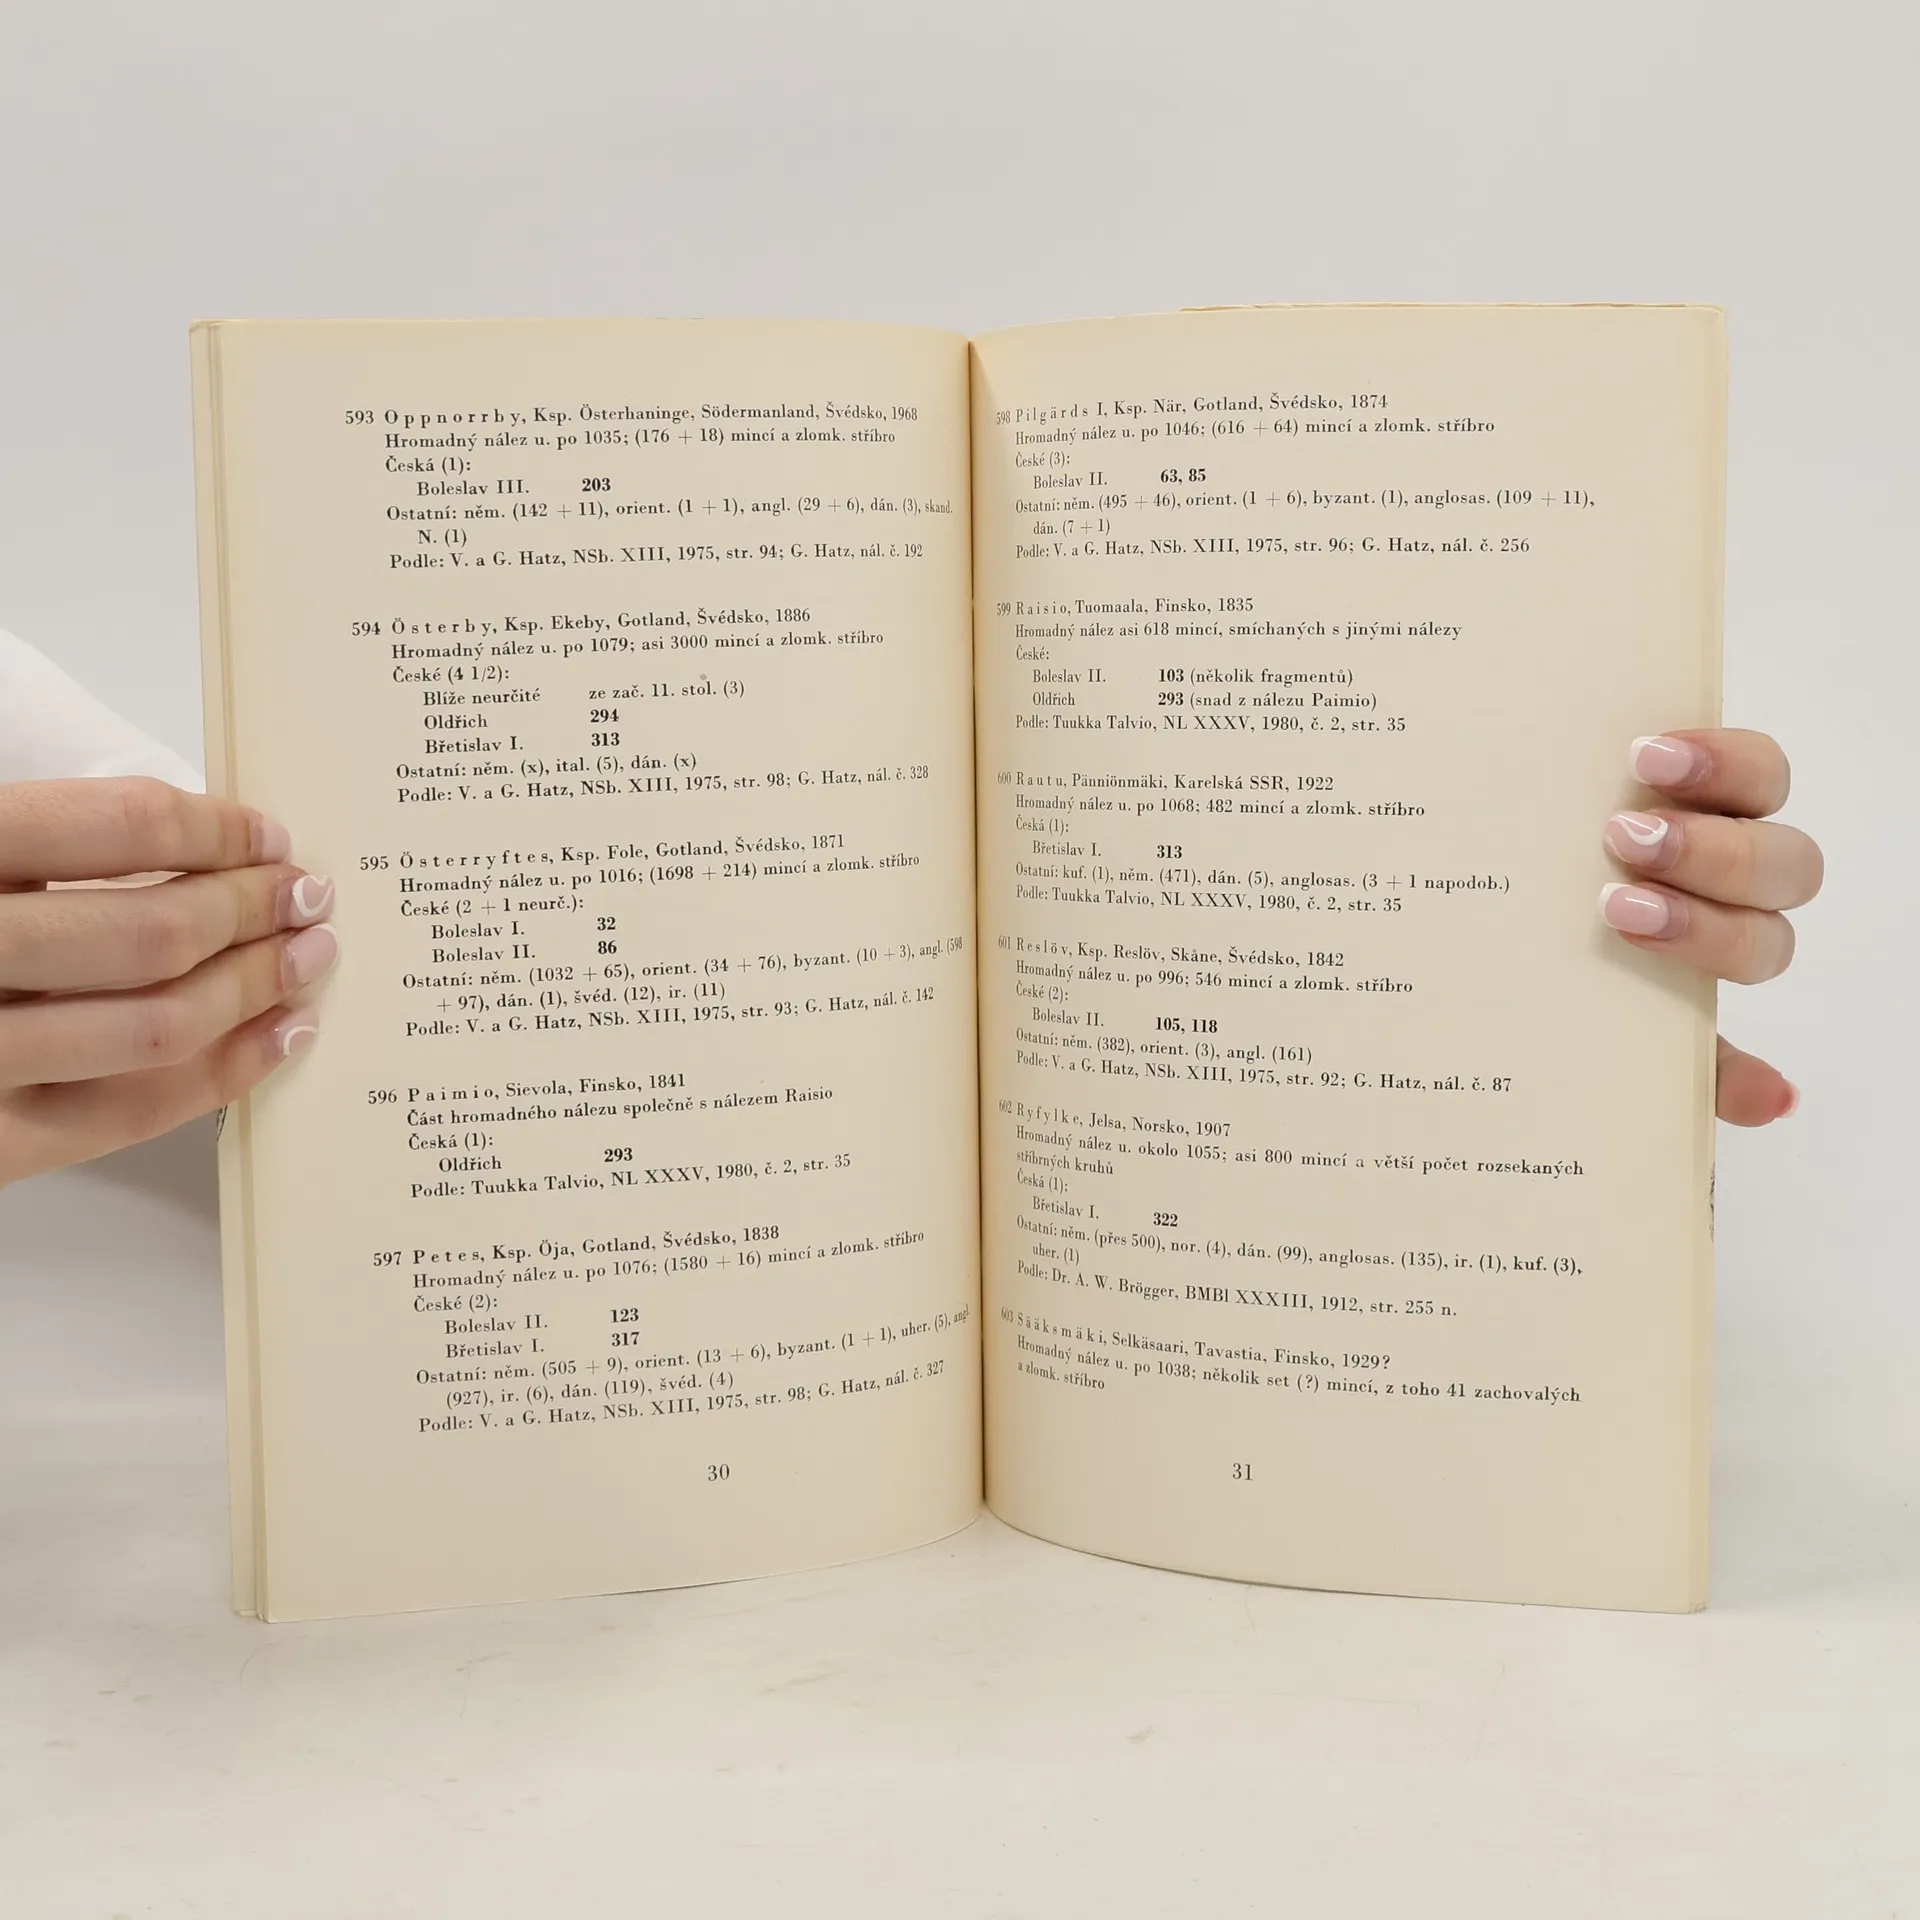 593 Oppnorrby, Ksp. Österhaninge, Södermanland, Švédsko, 1968
Hromadný nález u. po 1035; (176 + 18) mincí a zlomk. stříbro
Česká (1):
Boleslav III. 203
Ostatní: něm. (142 + 11), orient. (1 + 1), angl. (29 + 6), dán. (3), skand.
N. (1)
Podle: V. a G. Hatz, NSb. XIII, 1975, str. 94; G. Hatz, nál. č. 192
594 Österby, Ksp. Ekeby, Gotland, Švédsko, 1886
Hromadný nález u. po 1079; asi 3000 mincí a zlomk. stříbro
České (4 1/2):
Blíže neurčité ze zač. 11. stol. (3)
Oldřich 294
Břetislav I. 313
Ostatní: něm. (x), ital. (5), dán. (x)
Podle: V. a G. Hatz, NSb. XIII, 1975, str. 98; G. Hatz, nál. č. 328
595 Österryftes, Ksp. Fole, Gotland, Švédsko, 1871
Hromadný nález u. po 1016; (1698 + 214) mincí a zlomk. stříbro
České (2 + 1 neurč.):
Boleslav I. 32
Boleslav II. 86
Ostatní: něm. (1032 + 65), orient. (34 + 76), byzant. (10 + 3), angl. (598
+ 97), dán. (1), švéd. (12), ir. (11)
Podle: V. a G. Hatz, NSb. XIII, 1975, str. 93; G. Hatz, nál. č. 142
596 Paimio, Sievola, Finsko, 1841
Část hromadného nálezu společně s nálezem Raisio
Česká (1):
Oldřich 293
Podle: Tuukka Talvio, NL XXXV, 1980, č. 2, str. 35
597 Petes, Ksp. Öja, Gotland, Švédsko, 1838
Hromadný nález u. po 1076; (1580 + 16) mincí a zlomk. stříbro
České (2):
Boleslav II. 123
Břetislav I. 317
Ostatní: něm. (505 + 9), orient. (13 + 6), byzant. (1 + 1), uher. (5), angl.
(927), ir. (6), dán. (119), švéd. (4)
Podle: V. a G. Hatz, NSb. XIII, 1975, str. 98; G. Hatz, nál. č. 327
30
598 Pilgärds I, Ksp. När, Gotland, Švédsko, 1874
Hromadný nález u. po 1046; (616 + 64) mincí a zlomk. stříbro
České (3):
Boleslav II. 63, 85
Ostatní: něm. (495 + 46), orient. (1 + 6), byzant. (1), anglosas. (109 + 11),
dán. (7 + 1)
Podle: V. a G. Hatz, NSb. XIII, 1975, str. 96; G. Hatz, nál. č. 256
599 Raisio, Tuomaala, Finsko, 1835
Hromadný nález asi 618 mincí, smíchaných s jinými nálezy
České:
Boleslav II. 103 (několik fragmentů)
Oldřich 293 (snad z nálezu Paimio)
Podle: Tuukka Talvio, NL XXXV, 1980, č. 2, str. 35
600 Rautu, Pänniönmäki, Karelská SSR, 1922
Hromadný nález u. po 1068; 482 mincí a zlomk. stříbro
Česká (1):
Břetislav I. 313
Ostatní: kuf. (1), něm. (471), dán. (5), anglosas. (3 + 1 napodob.)
Podle: Tuukka Talvio, NL XXXV, 1980, č. 2, str. 35
601 Reslöv, Ksp. Reslöv, Skåne, Švédsko, 1842
Hromadný nález u. po 996; 546 mincí a zlomk. stříbro
České (2):
Boleslav II. 105, 118
Ostatní: něm. (382), orient. (3), angl. (161)
Podle: V. a G. Hatz, NSb. XIII, 1975, str. 92; G. Hatz, nál. č. 87
602 Ryfylke, Jelsa, Norsko, 1907
Hromadný nález u. okolo 1055; asi 800 mincí a větší počet rozsekaných
stříbrných kruhů
Česká (1):
Břetislav I. 322
Ostatní: něm. (přes 500), nor. (4), dán. (99), anglosas. (135), ir. (1), kuf. (3),
uher. (1)
Podle: Dr. A. W. Brögger, BMBl XXXIII, 1912, str. 255 n.
603 Sääksmäki, Selkäsaari, Tavastia, Finsko, 1929?
Hromadný nález u. po 1038; několik set (?) mincí, z toho 41 zachovalých
a zlomk. stříbro
31